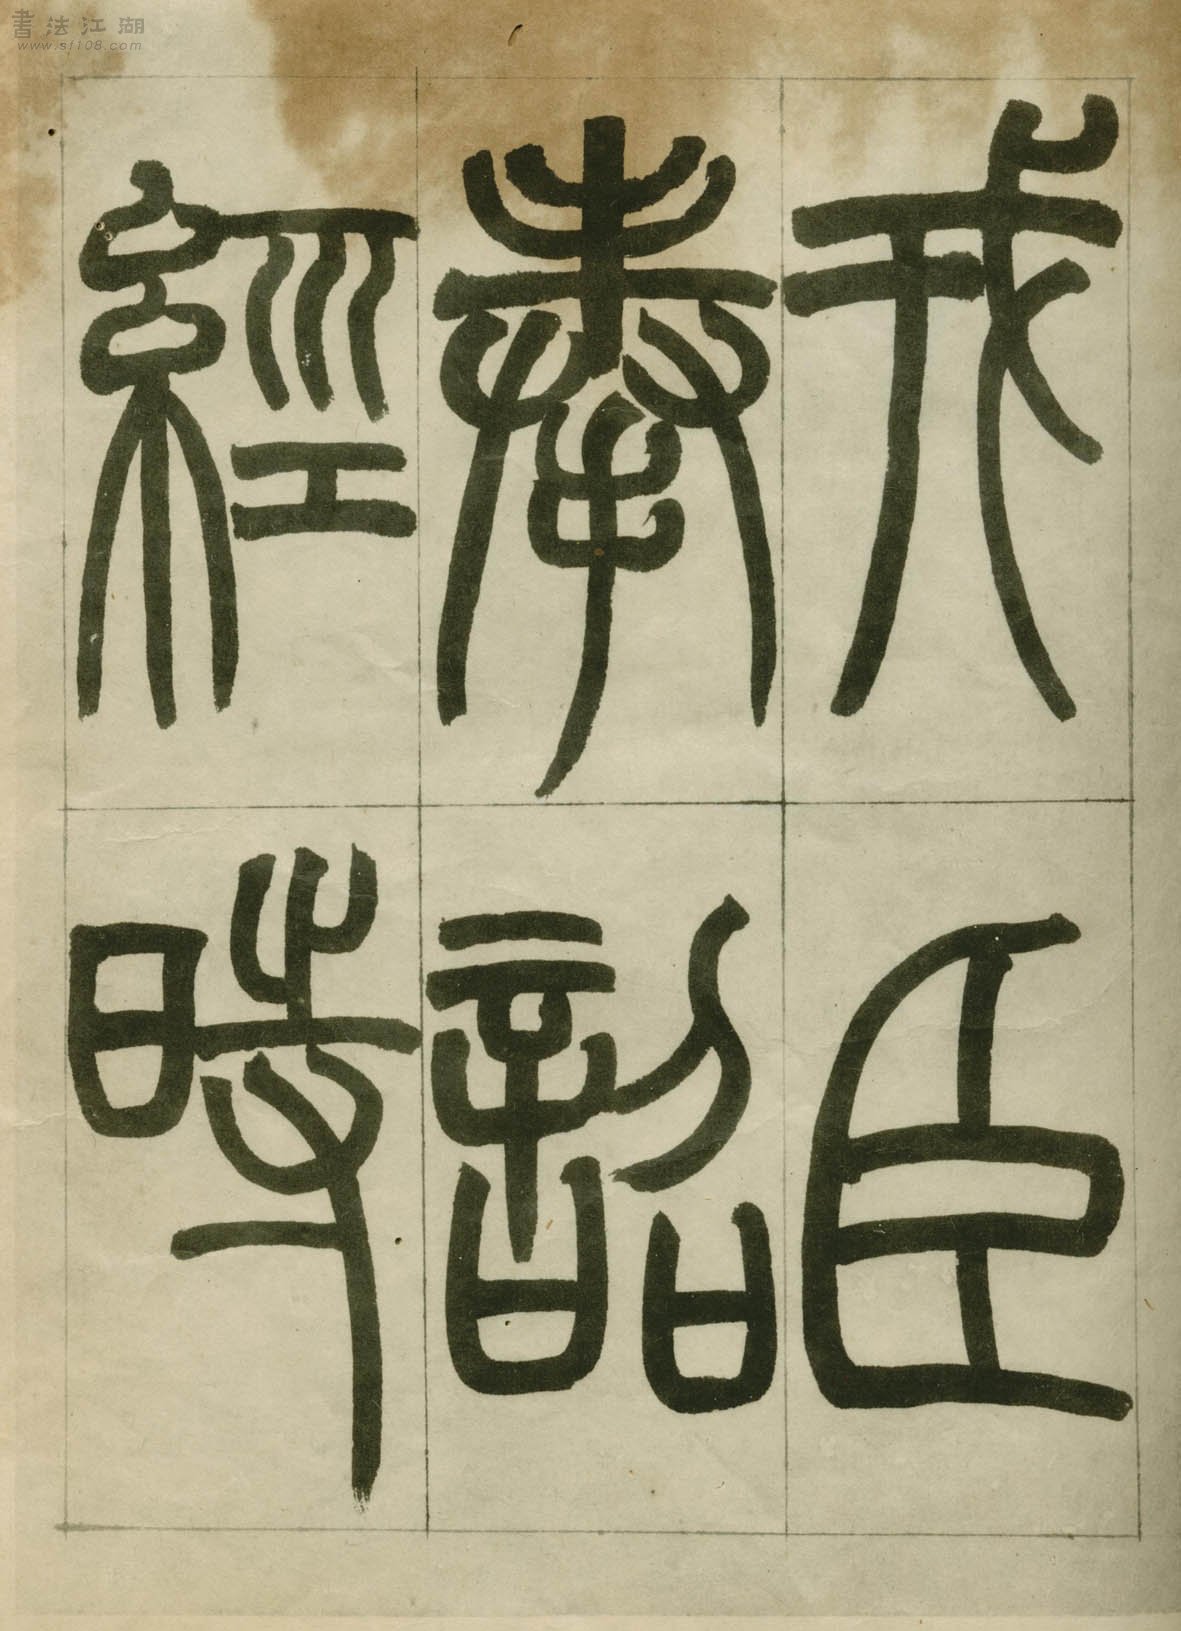 戎臣
奉詔
經時
書法江湖
www.sf108.com